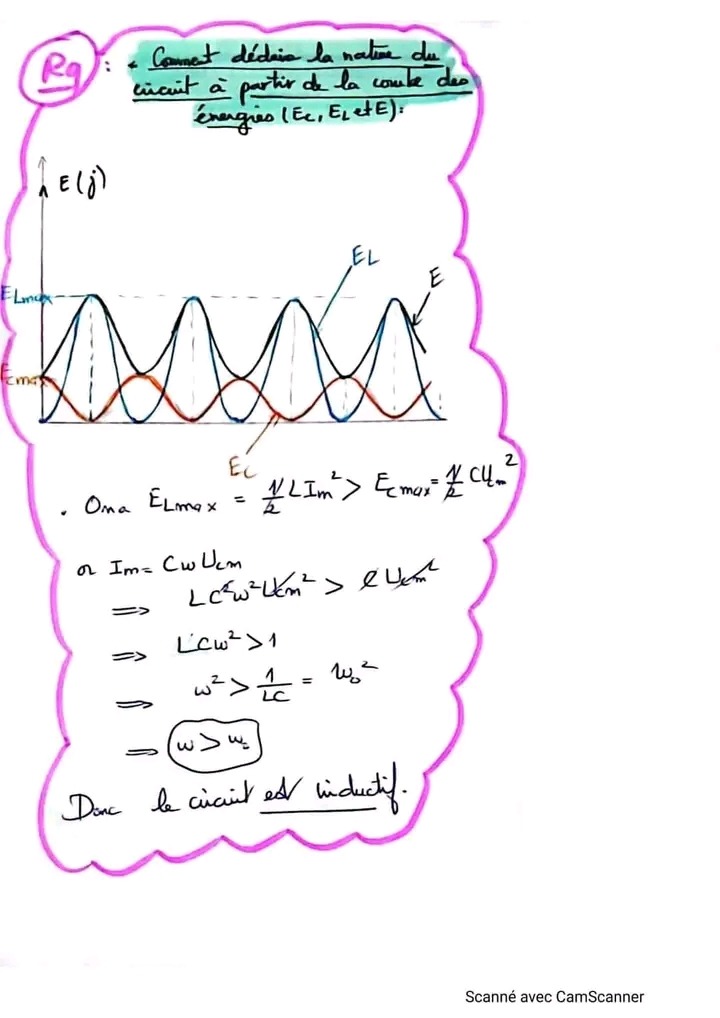 Rq : • Comment déduire la nature du
circuit à partir de la courbe des
énergies (Ec, EL et E):
E(j)
EL
E
ELmax
Ecmax
Ec
. On a ELmax = 1/2 L Im² > Ecmax = 1/2 C Um²
or Im = Cω Ucm
⇒ LC²ω²Ucm² > C Ucm²
⇒ LCω² > 1
⇒ ω² > 1/LC = ω₀²
⇒ ω > ω₀
Donc le circuit est inductif.
Scanné avec CamScanner